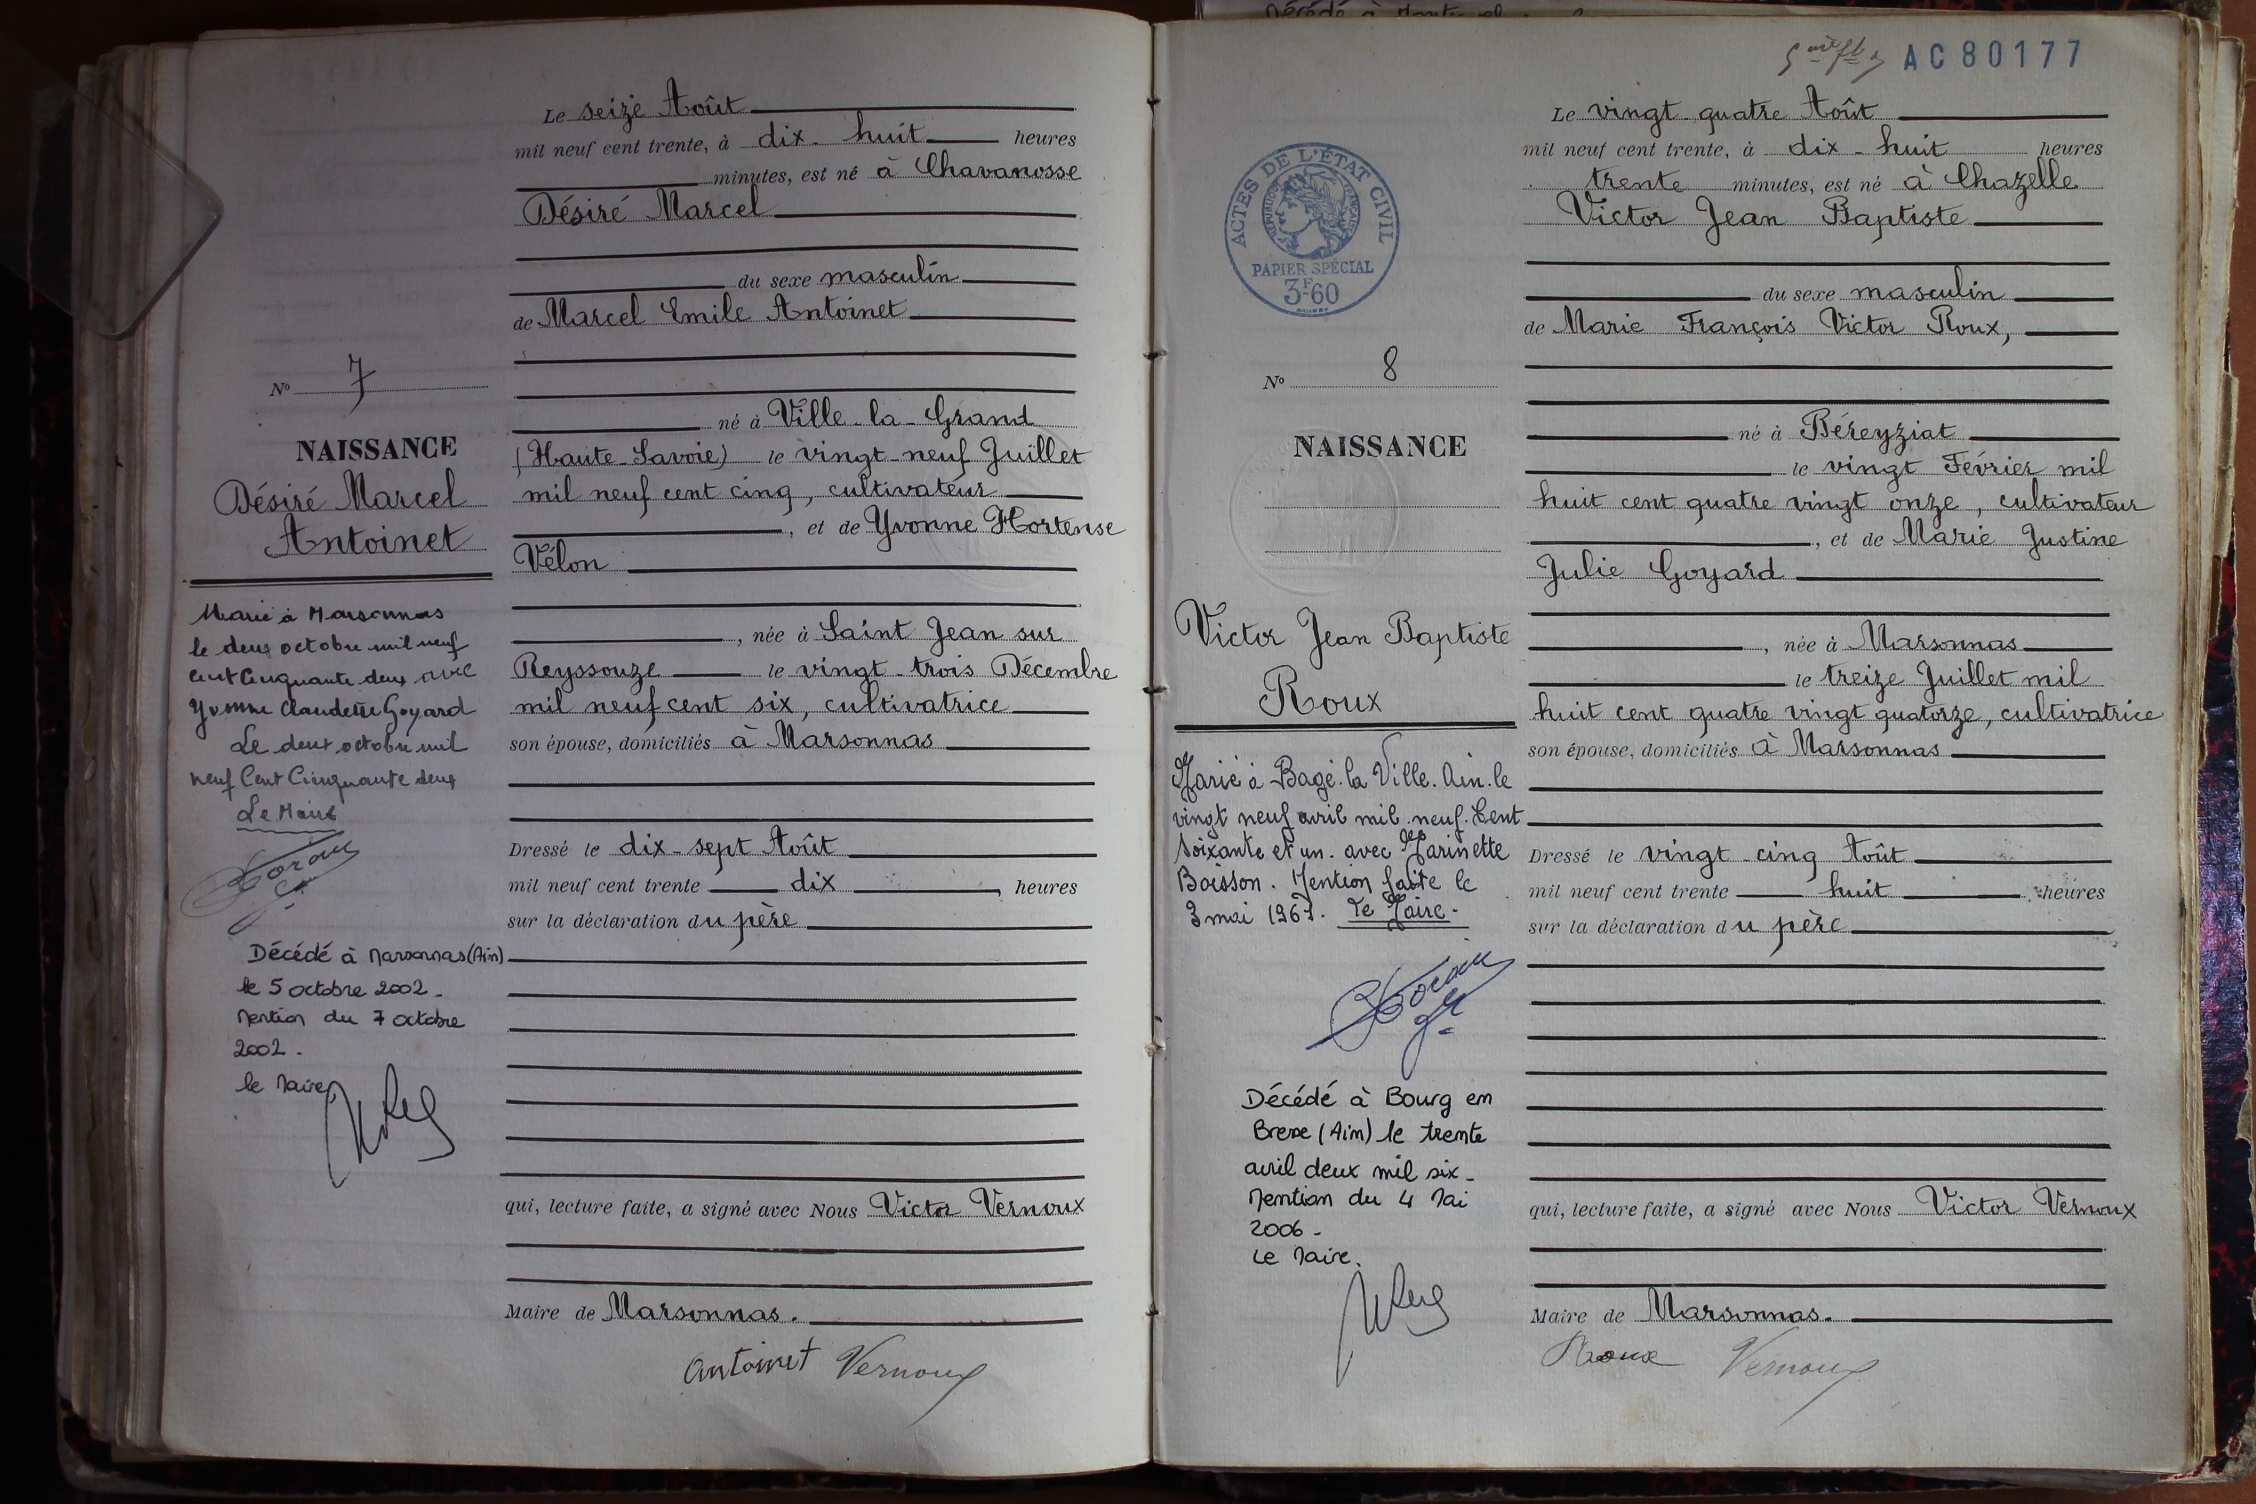 Le seize Août
mil neuf cent trente, à dix-huit heures
minutes, est né à Chavanosse
Désiré Marcel
du sexe masculin
de Marcel Emile Antoinet
né à Ville-la-Grand
(Haute-Savoie) le vingt-neuf Juillet
mil neuf cent cinq, cultivateur
, et de Yvonne Hortense
Vélon
, née à Saint Jean sur
Reyssouze le vingt-trois Décembre
mil neuf cent six, cultivatrice
son épouse, domiciliés à Marsonnas
Dressé le dix-sept Août
mil neuf cent trente dix, heures
sur la déclaration du père
qui, lecture faite, a signé avec Nous Victor Vernoux
Maire de Marsonnas.
Antoinet Vernoux
No 7
NAISSANCE
Désiré Marcel
Antoinet
Marié à Marsonnas
le deux octobre mil neuf
cent cinquante deux avec
Yvonne Claudette Goyard
Le deux octobre mil
neuf Cent Cinquante deux
Le Maire
Décédé à Marsonnas (Ain)
le 5 octobre 2002.
Mention du 7 octobre
2002.
le Maire
AC80177
Le vingt-quatre Août
mil neuf cent trente, à dix-huit heures
trente minutes, est né à Chazelle
Victor Jean Baptiste
du sexe masculin
de Marie François Victor Roux,
né à Béreyziat
le vingt Février mil
huit cent quatre vingt onze, cultivateur
, et de Marie Justine
Julie Goyard
, née à Marsonnas
le treize Juillet mil
huit cent quatre vingt quatorze, cultivatrice
son épouse, domiciliés à Marsonnas
Dressé le vingt-cinq Août
mil neuf cent trente huit, heures
sur la déclaration du père
qui, lecture faite, a signé avec Nous Victor Vernoux
Maire de Marsonnas.
Roux Vernoux
ACTES DE L'ÉTAT CIVIL
RÉPUBLIQUE FRANÇAISE
PAPIER SPÉCIAL
3F.60
No 8
NAISSANCE
Victor Jean Baptiste
Roux
Marié à Bagé-la Ville. Ain. le
vingt neuf avril mil neuf. Cent
soixante et un. avec Marinette
Boisson. Mention faite le
3 mai 1961. Le Maire.
Décédé à Bourg en
Bresse (Ain) le trente
avril deux mil six.
Mention du 4 Mai
2006.
Le Maire.